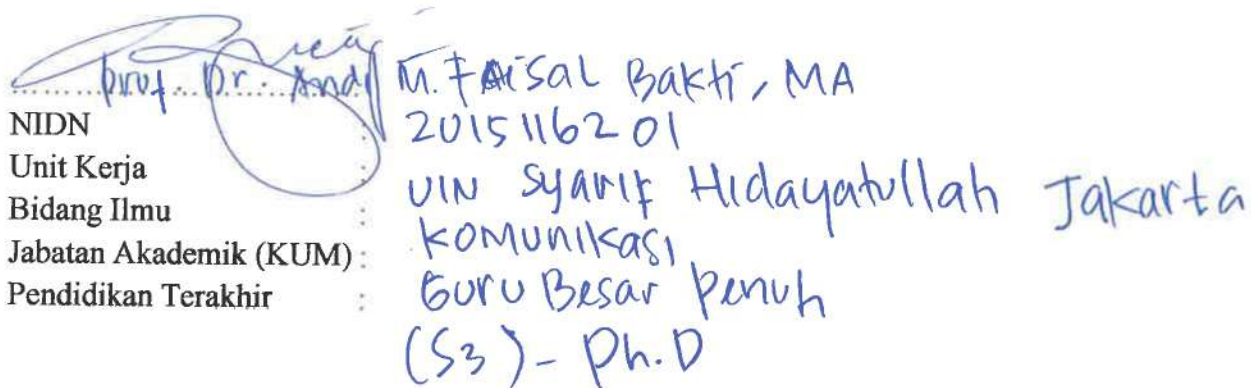 Prof. Dr. Andi M. Faisal Bakti, MA
NIDN : 2015116201
Unit Kerja : UIN Syarif Hidayatullah Jakarta
Bidang Ilmu : Komunikasi
Jabatan Akademik (KUM) : Guru Besar Penuh
Pendidikan Terakhir : (S3) - Ph.D